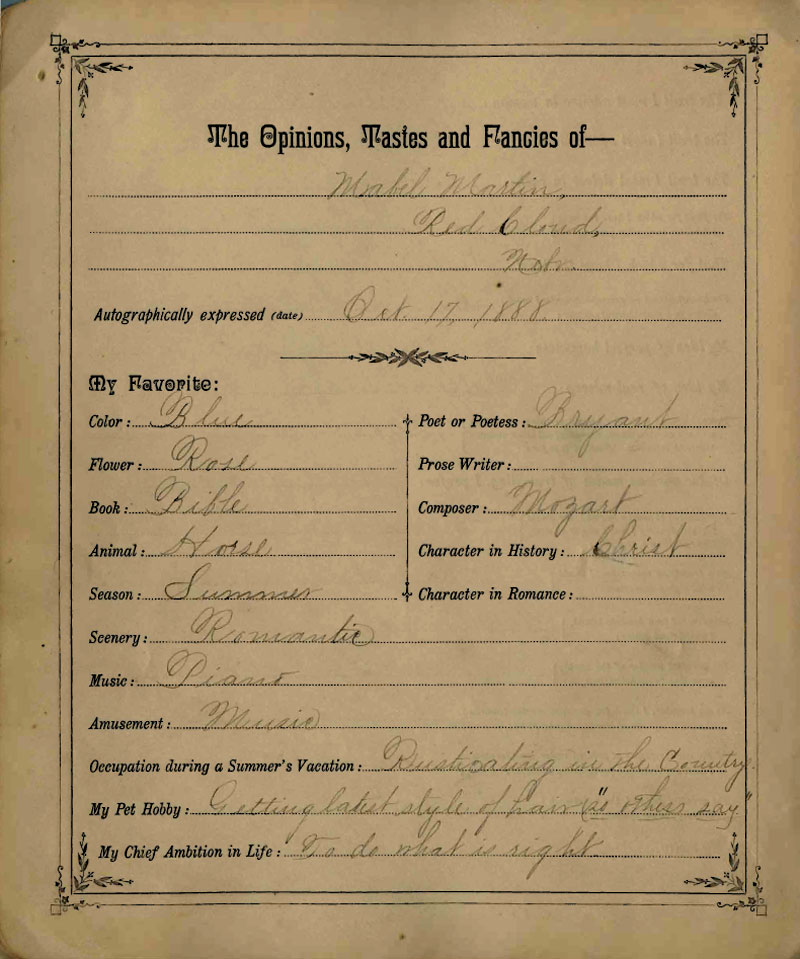 The Opinions, Tastes and Fancies of—
Mabel Martin,
Red Cloud,
Nebr.
Autographically expressed (date) Oct. 17, 1888
My Favorite:
Color: Blue
Flower: Rose
Book: Bible
Animal: Horse
Season: Summer
Poet or Poetess: Bryant
Prose Writer:
Composer: Mozart
Character in History: Christ
Character in Romance:
Scenery: Romantic
Music: Piano
Amusement: Music
Occupation during a Summer's Vacation: Rusticating in the Country
My Pet Hobby: Getting latest style of hair "as others say"
My Chief Ambition in Life: To do what is right